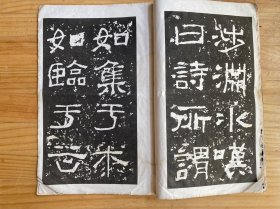 涉淵冰嘆
曰詩所謂
如集于木
如臨于谷